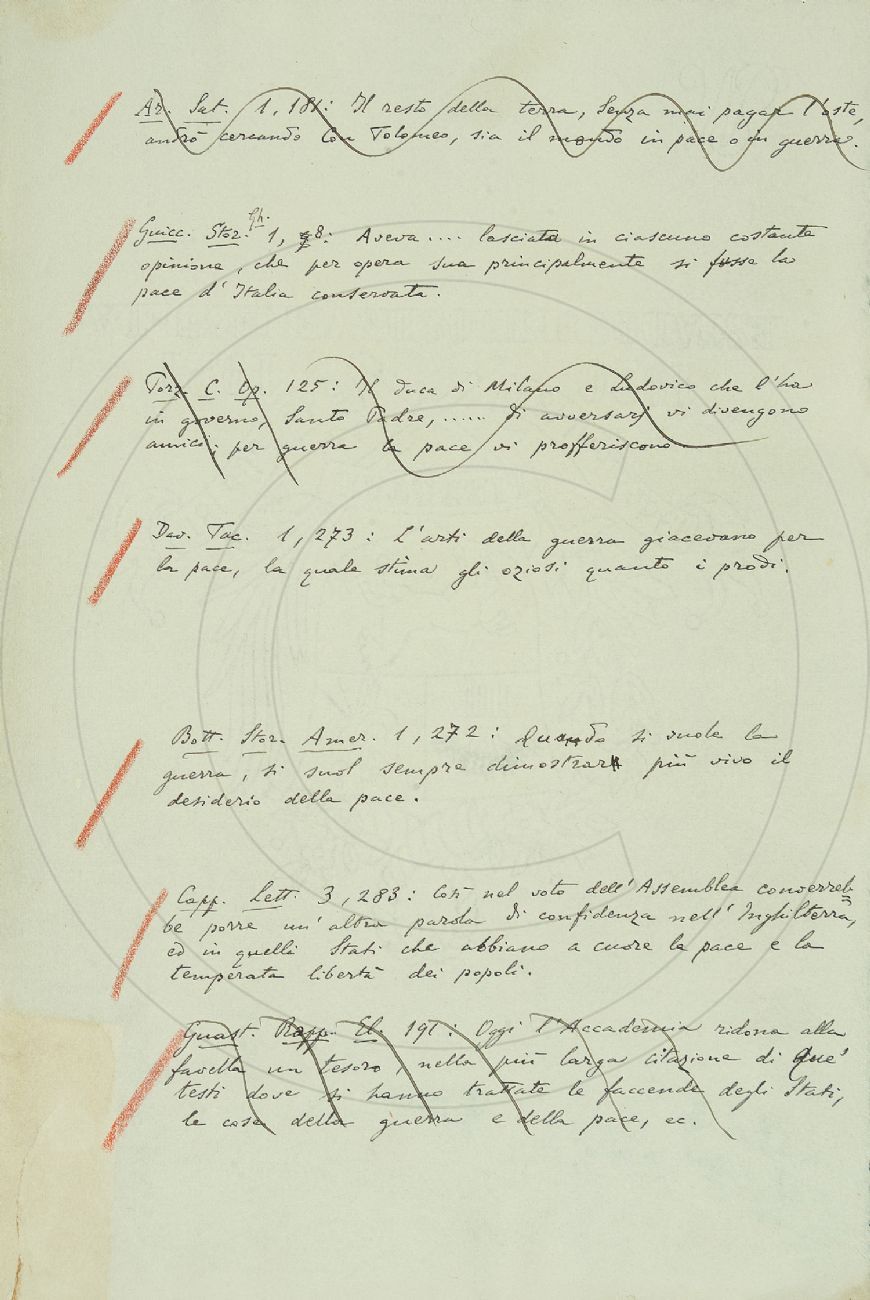 Ar. Sat. 1, 181: Il resto della terra, Senza mai pagar l'oste,
andrò cercando Con Tolomeo, sia il mondo in pace o in guerra.
Guicc. Stor. Gh. 1, 98: Aveva .... lasciata in ciascuno costante
opinione, che per opera sua principalmente si fusse la
pace d'Italia conservata.
Torz. C. Op. 125: Il duca di Milano e Ludovico che l'ha
in governo, Santo Padre, ..... di avversarj vi divengono
amici; per guerra la pace vi profferiscono
Dav. Tac. 1, 273: L'arti della guerra giacevano per
la pace, la quale stima gli oziosi quanto i prodi.
Bott. Stor. Amer. 1, 272: Quando si vuole la
guerra, si suol sempre dimostrar più vivo il
desiderio della pace.
Capp. Lett. 3, 283: Così nel voto dell'Assemblea converreb-
be porre un'altra parola di confidenza nell'Inghilterra,
ed in quelli Stati che abbiano a cuore la pace e la
temperata libertà dei popoli.
Guast. Rapp. El. 191: Oggi l'Accademia ridona alla
favella un tesoro, nella più larga citazione di que'
testi dove si hanno trattate le faccende degli Stati,
le cose della guerra e della pace, ec.